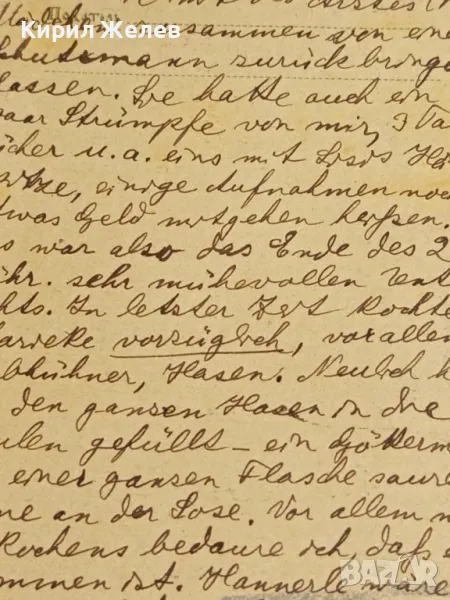 Кирил Желев
zusammen von eine
Schutzmann zurück bringe
lassen. Sie hatte auch ein
paar Strümpfe von mir, 3 Ta
ücher u. a. eins mit Lisis Hä
itze, einige Aufnahmen noch
twas Geld mitgehen heißen.
s war also das Ende des 2
ühr. sehr mühevollen
hts. In letzter Zeit kochte
Marieke vorzüglich, vor allem
bhühner, Hasen. Neulich h
den ganzen Hasen in die
ulen gefüllt – ein Götterm
einer ganzen Flasche saure
ne an der Sose. Vor allem
Kochens bedaure ich, daß
ommen ist. Hannerle wäre
BAZAR